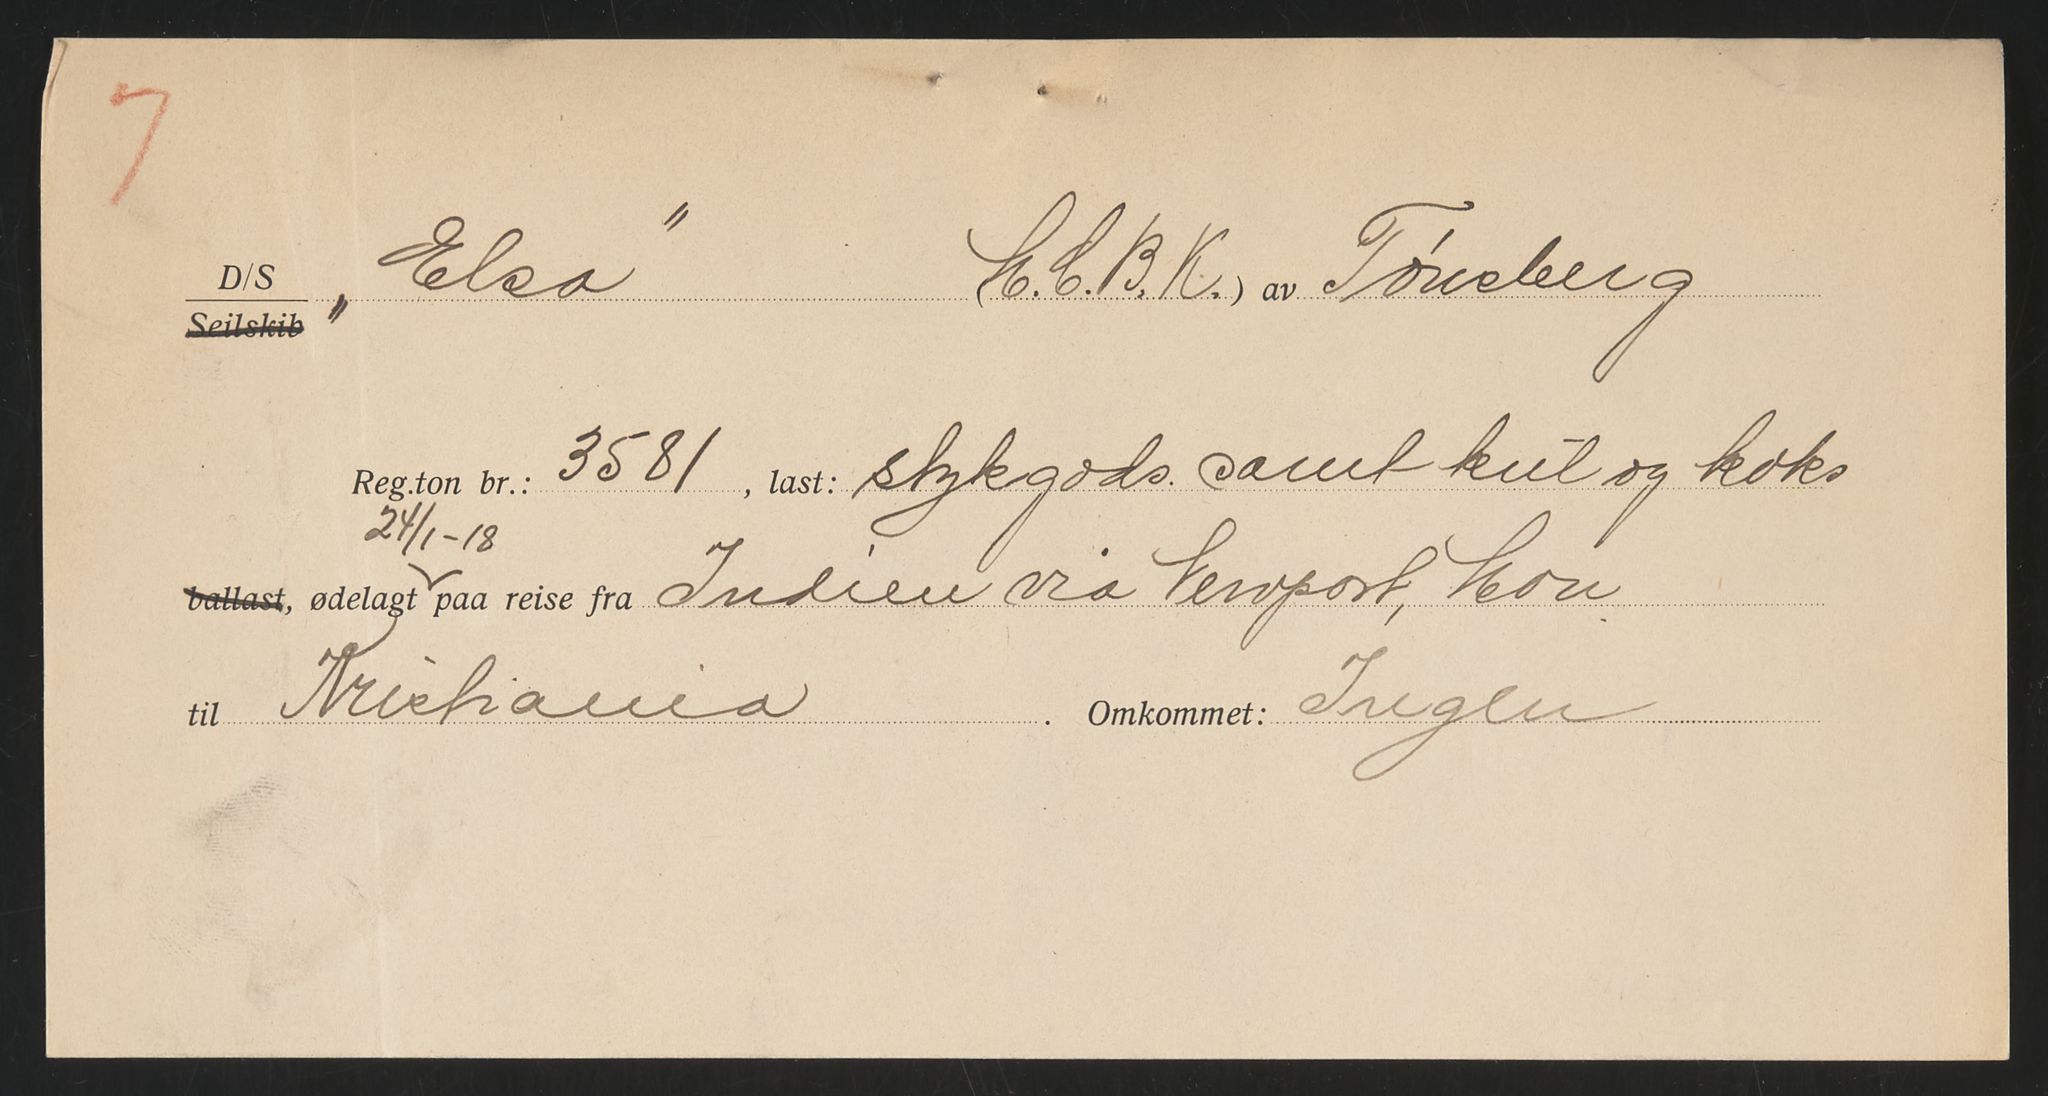 7
D/S „Elsa" (M.C.B.K.) av Tønsberg
Seilskib
Reg.ton br.: 3581, last: stykgods. samt kul og koks
24/1-18
ballast, ødelagt paa reise fra Indien via Newport, Mon.
til Kristiania. Omkommet: Ingen